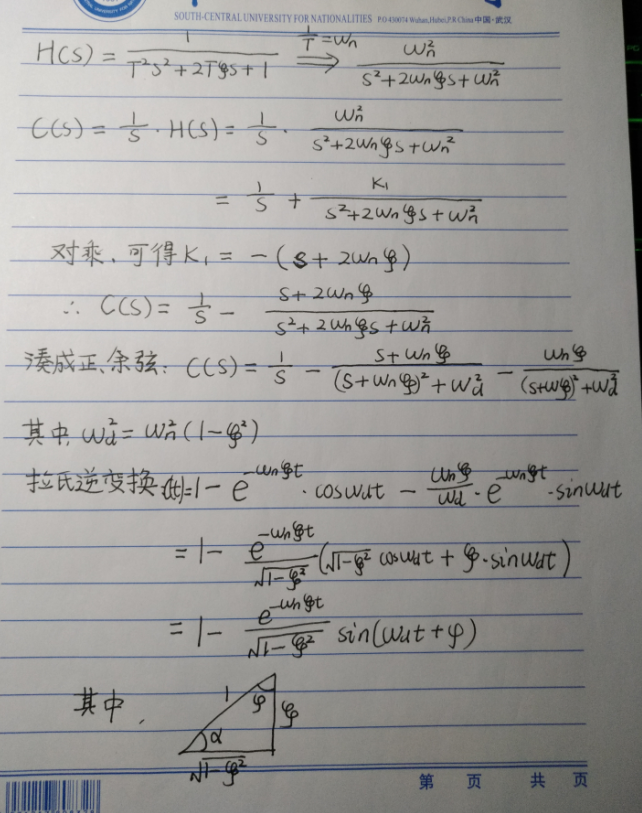 SOUTH-CENTRAL UNIVERSITY FOR NATIONALITIES P.O 430074 Wuhan, Hubei, P.R China 中国·武汉
H(s) = 1/(T²s²+2Tξs+1) ⟹ (1/T=ωn) ωn²/(s²+2ωnξs+ωn²)
C(s) = 1/s · H(s) = 1/s · ωn²/(s²+2ωnξs+ωn²)
= 1/s + K₁/(s²+2ωnξs+ωn²)
对乘，可得 K₁ = -(s+2ωnξ)
∴ C(s) = 1/s - (s+2ωnξ)/(s²+2ωnξs+ωn²)
凑成正、余弦: C(s) = 1/s - (s+ωnξ)/((s+ωnξ)²+ωd²) - ωnξ/((s+ωξ)²+ωd²)
其中, ωd² = ωn²(1-ξ²)
拉氏逆变换 c(t)=1-e^(-ωnξt)·cosωdt - ωnξ/ωd·e^(-ωnξt)·sinωdt
= 1 - e^(-ωnξt)/√(1-ξ²) (√(1-ξ²) cosωdt + ξ·sinωdt)
= 1 - e^(-ωnξt)/√(1-ξ²) sin(ωdt+φ)
其中,
1 φ ξ
α
√(1-ξ²)
第 页 共 页